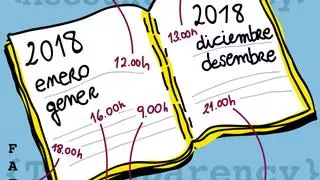 2018
enero
gener
12.00h
16.00h
9.00h
18.00h
2018
diciembre
desembre
13.00h
21.00h
F
A